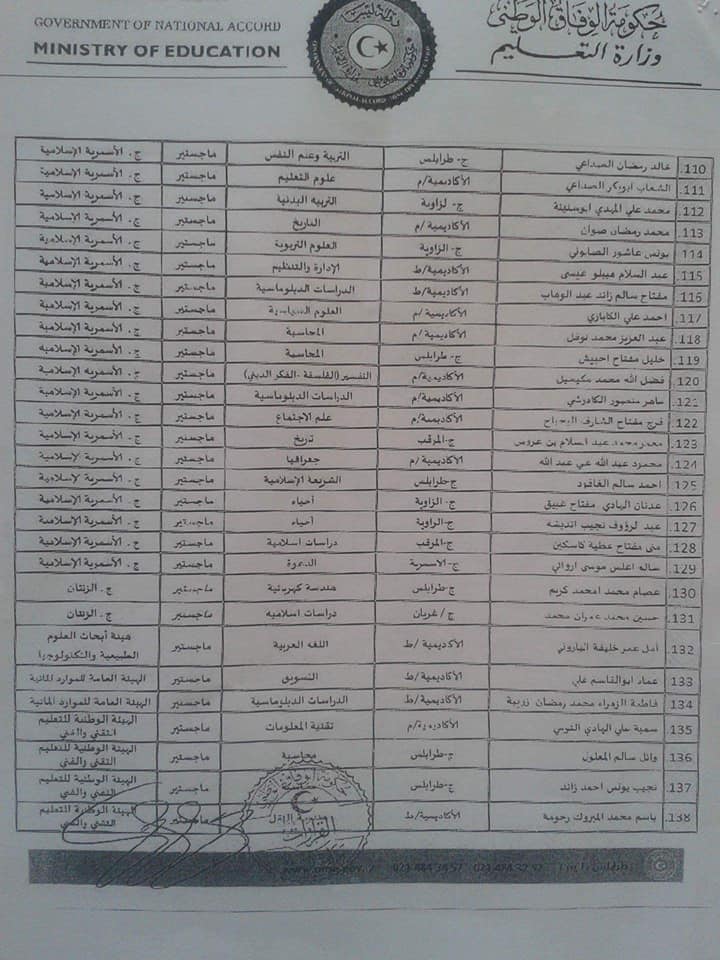 GOVERNMENT OF NATIONAL ACCORD
MINISTRY OF EDUCATION
حكومة الوفاق الوطني
وزارة التعليم
110. خالد رمضان الصداعي ج- طرابلس التربية وعلم النفس ماجستير ج. الأسمرية الإسلامية
111. الشعاب ابوبكر الصداعي الأكاديمية/م علوم التعليم ماجستير ج. الأسمرية الإسلامية
112. محمد علي المهدي ابوسنينة ج- لزاوية التربيه البدنية ماجستير ج. الأسمرية الإسلامية
113. محمد رمضان صوان الأكاديمية /م التاريخ ماجستير ج. الأسمرية الإسلامية
114. يونس عاشور الصابوني ج- الزاوية العلوم التربوية ماجستير ج. الأسمرية الإسلامية
115. عبد السلام ميلو عيسى الأكاديمية/ط الإدارة والتنظيم ماجستير ج. الأسمرية الإسلامية
116. مفتاح سالم زائد عبد الوهاب الأكاديمية/ط الدراسات الدبلوماسية ماجستير ج. الأسمرية الإسلامية
117. احمد علي الكابازي الأكاديمية /م العلوم السياسية ماجستير ج. الأسمرية الإسلامية
118. عبد العزيز محمد نوفل الأكاديمية /م المحاسبة ماجستير ج. الأسمرية الإسلامية
119. خليل مفتاح احبيش ج- طرابلس المحاسبة ماجستير ج. الأسمرية الإسلاميه
120. فضل الله محمد مكيميل الأكاديمية/م التفسير (الفلسفة -الفكر الديني) ماجستير ج. الأسمرية الإسلامية
121. ساهر منصور الكادوشي الأكاديمية/م الدراسات الدبلوماسية ماجستير ج. الأسمرية الإسلامية
122. فرج مفتاح الشارف الأكاديمية/م علم الاجتماع ماجستير ج. الأسمرية الإسلامية
123. محمد عبد السلام بن عروس ج-المرقب تاريخ ماجستير ج. الأسمرية الإسلامية
124. محمود عبد الله علي عبد الله الأكاديمية /م جغرافيا ماجستير ج. الأسمرية الإسلامية
125. احمد سالم القاقود ج-طرابلس الشريعة الإسلامية ماجستير ج. الأسمرية الإسلامية
126. عدنان الهادي مفتاح غبيق ج- الزاوية أحياء ماجستير ج. الأسمرية الإسلامية
127. عبد الرؤوف نجيب انديشه ج-الزاوية أحياء ماجستير ج. الأسمرية الإسلامية
128. منى مفتاح عطية كاسكين ج-المرقب دراسات اسلامية ماجستير ج. الأسمرية الإسلامية
129. سالم اعلس موسى اروائي ج- الاسمرية الدعوة ماجستير ج. الأسمرية الإسلامية
130. عصام محمد امحمد كريم ج-طرابلس هندسة كهربائية ماجستير ج. الزنتان
131. حسين محمد عمران محمد ج/ غريان دراسات اسلاميه ماجستير ج. الزنتان
132. أمل عمر خليفة الباروني الأكاديمية /ط اللغه العربية ماجستير هيئة أبحاث العلوم
الطبيعية والتكنولوجيا
133. عماد ابوالقاسم علي الأكاديمية /ط التسويق ماجستير الهيئة العامة للموارد المائية
134. فاطمة الزهراء محمد رمضان زريبة الأكاديمية /ط الدراسات الدبلوماسية ماجستير الهيئة العامة للموارد المائية
135. سمية علي الهادي الأكاديمية/م تقنية المعلومات ماجستير الهيئة الوطنية للتعليم
التقني والفني
136. وائل سالم المعلول ج-طرابلس محاسبة ماجستير الهيئة الوطنية للتعليم
التقني والفني
137. نجيب يونس احمد زائد ج-طرابلس ماجستير الهيئة الوطنية للتعليم
التقني والفني
138. باسم محمد المبروك رحومة الأكاديمية/ط ماجستير الهيئة الوطنية للتعليم
التقني والفني